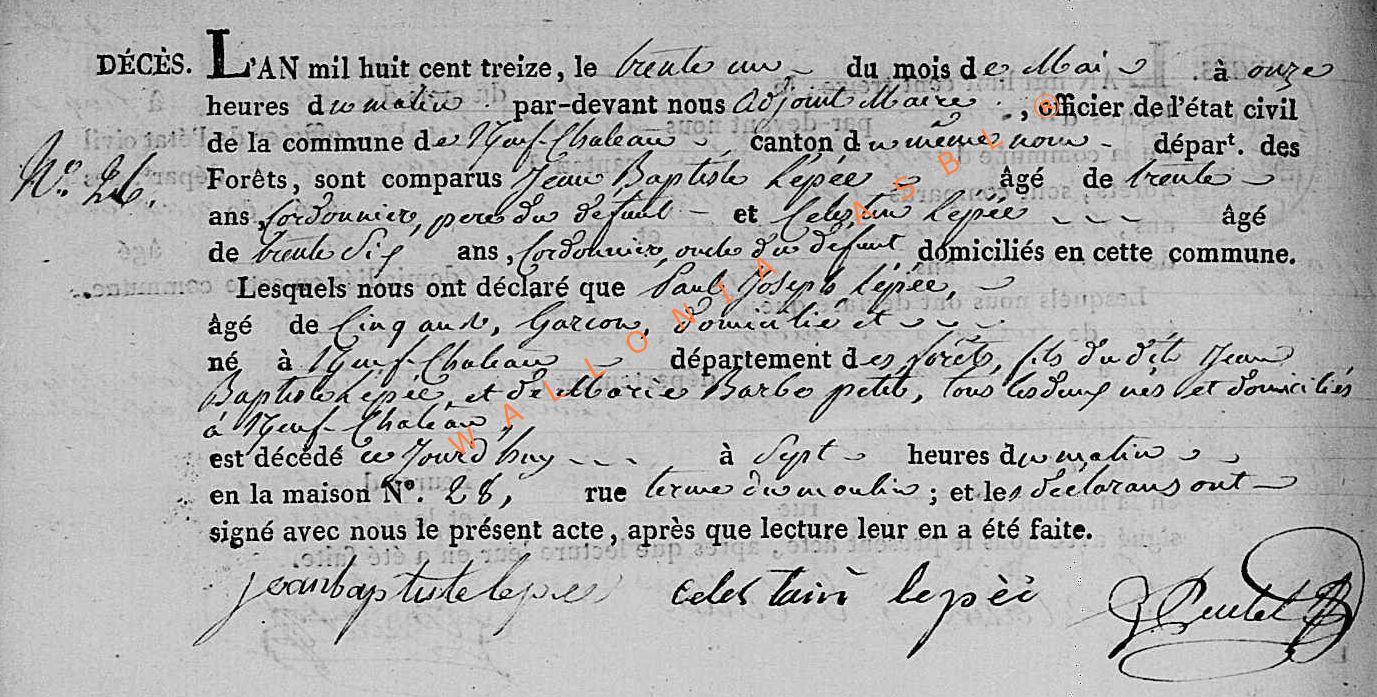 DÉCÈS. L'AN mil huit cent treize, le trente un du mois de Mai à onze
heures du matin par-devant nous Adjoint Maire, officier de l'état civil
de la commune de Neuf-Chateau, canton du même nom - dépar.t des
N.o 26. Forêts, sont comparus Jean Baptiste Lepée âgé de trente
ans, Cordonnier, pere du défunt - et Celestin Lepée - - - âgé
de trente Six ans, Cordonnier, oncle du défunt, domiciliés en cette commune.
Lesquels nous ont déclaré que Paul Joseph Lepée,
âgé de Cinq ans, Garçon, domicilié et
né à Neuf-Chateau département des forêts, fils du dit Jean
Baptiste Lepée, et de Marie Barbe petit, tous les deux nés et domiciliés
à Neuf-Chateau,
est décédé ce Jourd'huy - - - à Sept heures du matin
en la maison N.o 28, rue terme du moulin; et les déclarans ont
signé avec nous le présent acte, après que lecture leur en a été faite.
jeanbaptistelepée celestain lepèe
WALLONIA ASBL ©